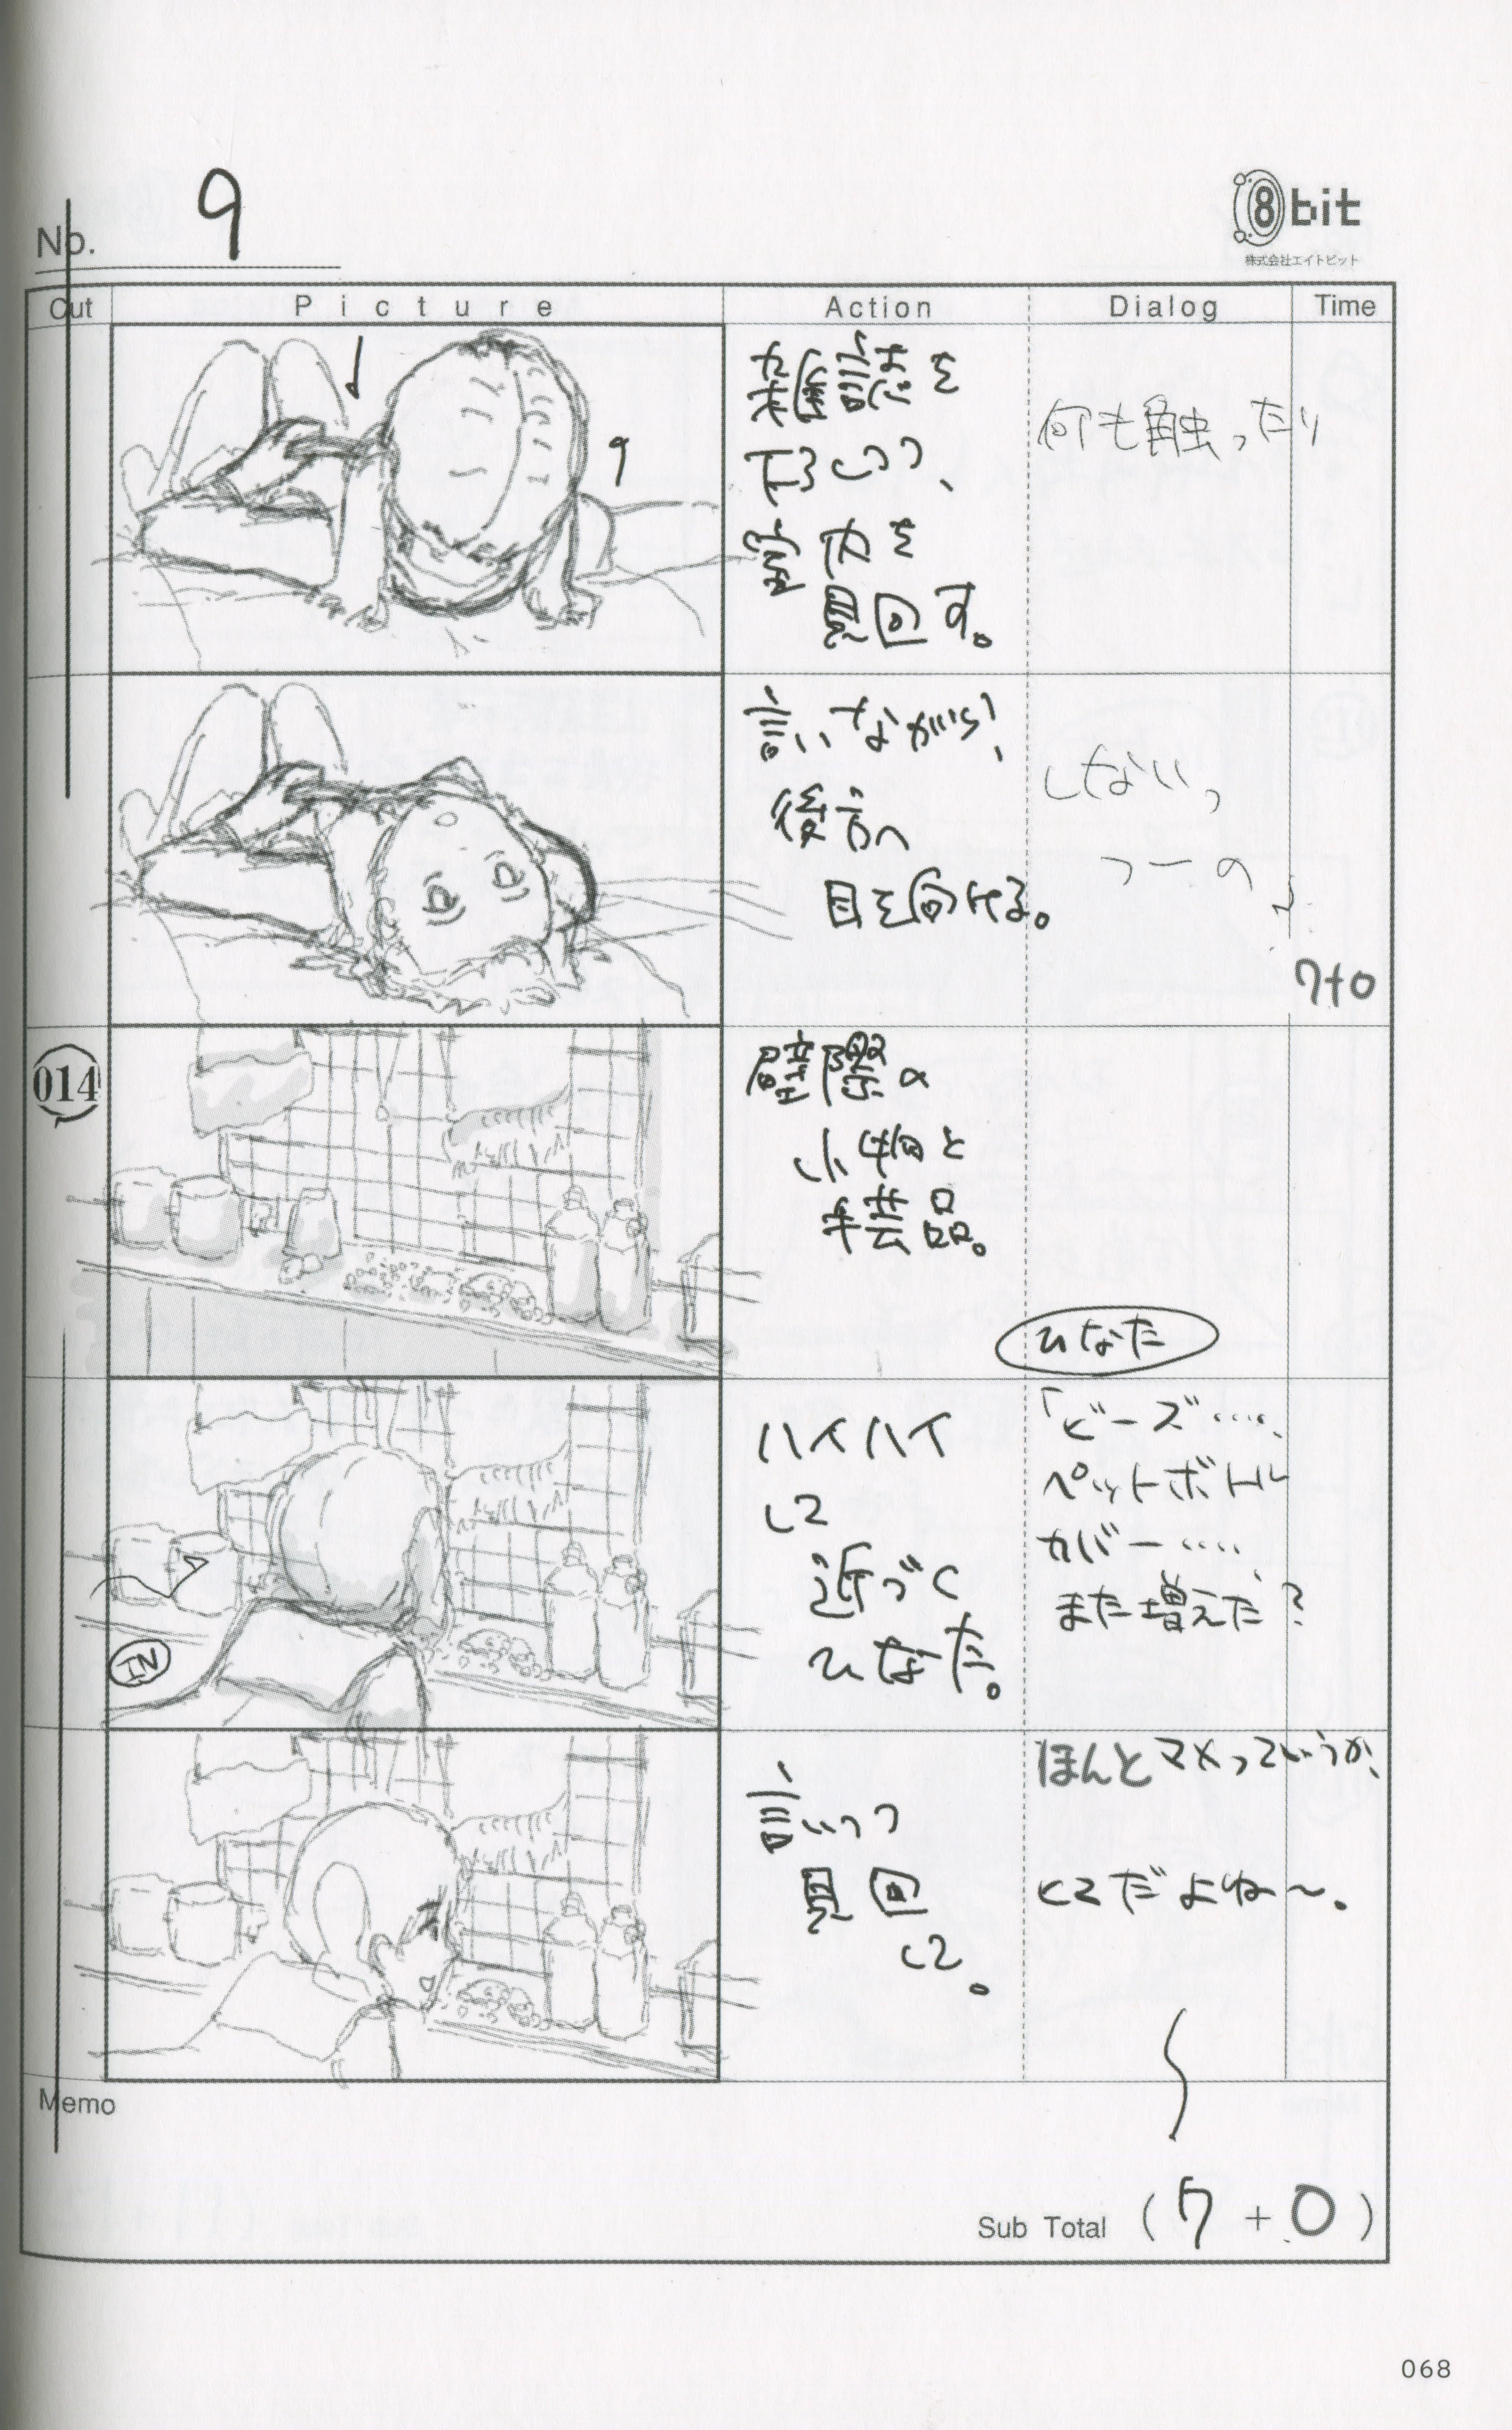 No. 9
8bit
株式会社エイトビット
Cut Picture Action Dialog Time
雑誌を
下ろしつつ、
室内を
見回す。
何も触ったり
言いながら、
後方へ
目を向ける。
しない、
つーの
7+0
014
壁際の
小物と
手芸品。
ひなた
ハイハイ
して
近づく
ひなた。
「ビーズ‥‥、
ペットボトル
カバー‥‥、
また増えた?
IN
言いつつ
見回
して。
ほんとマメっていうか、
って感じだよね〜。
Memo
Sub Total (7+0)
068